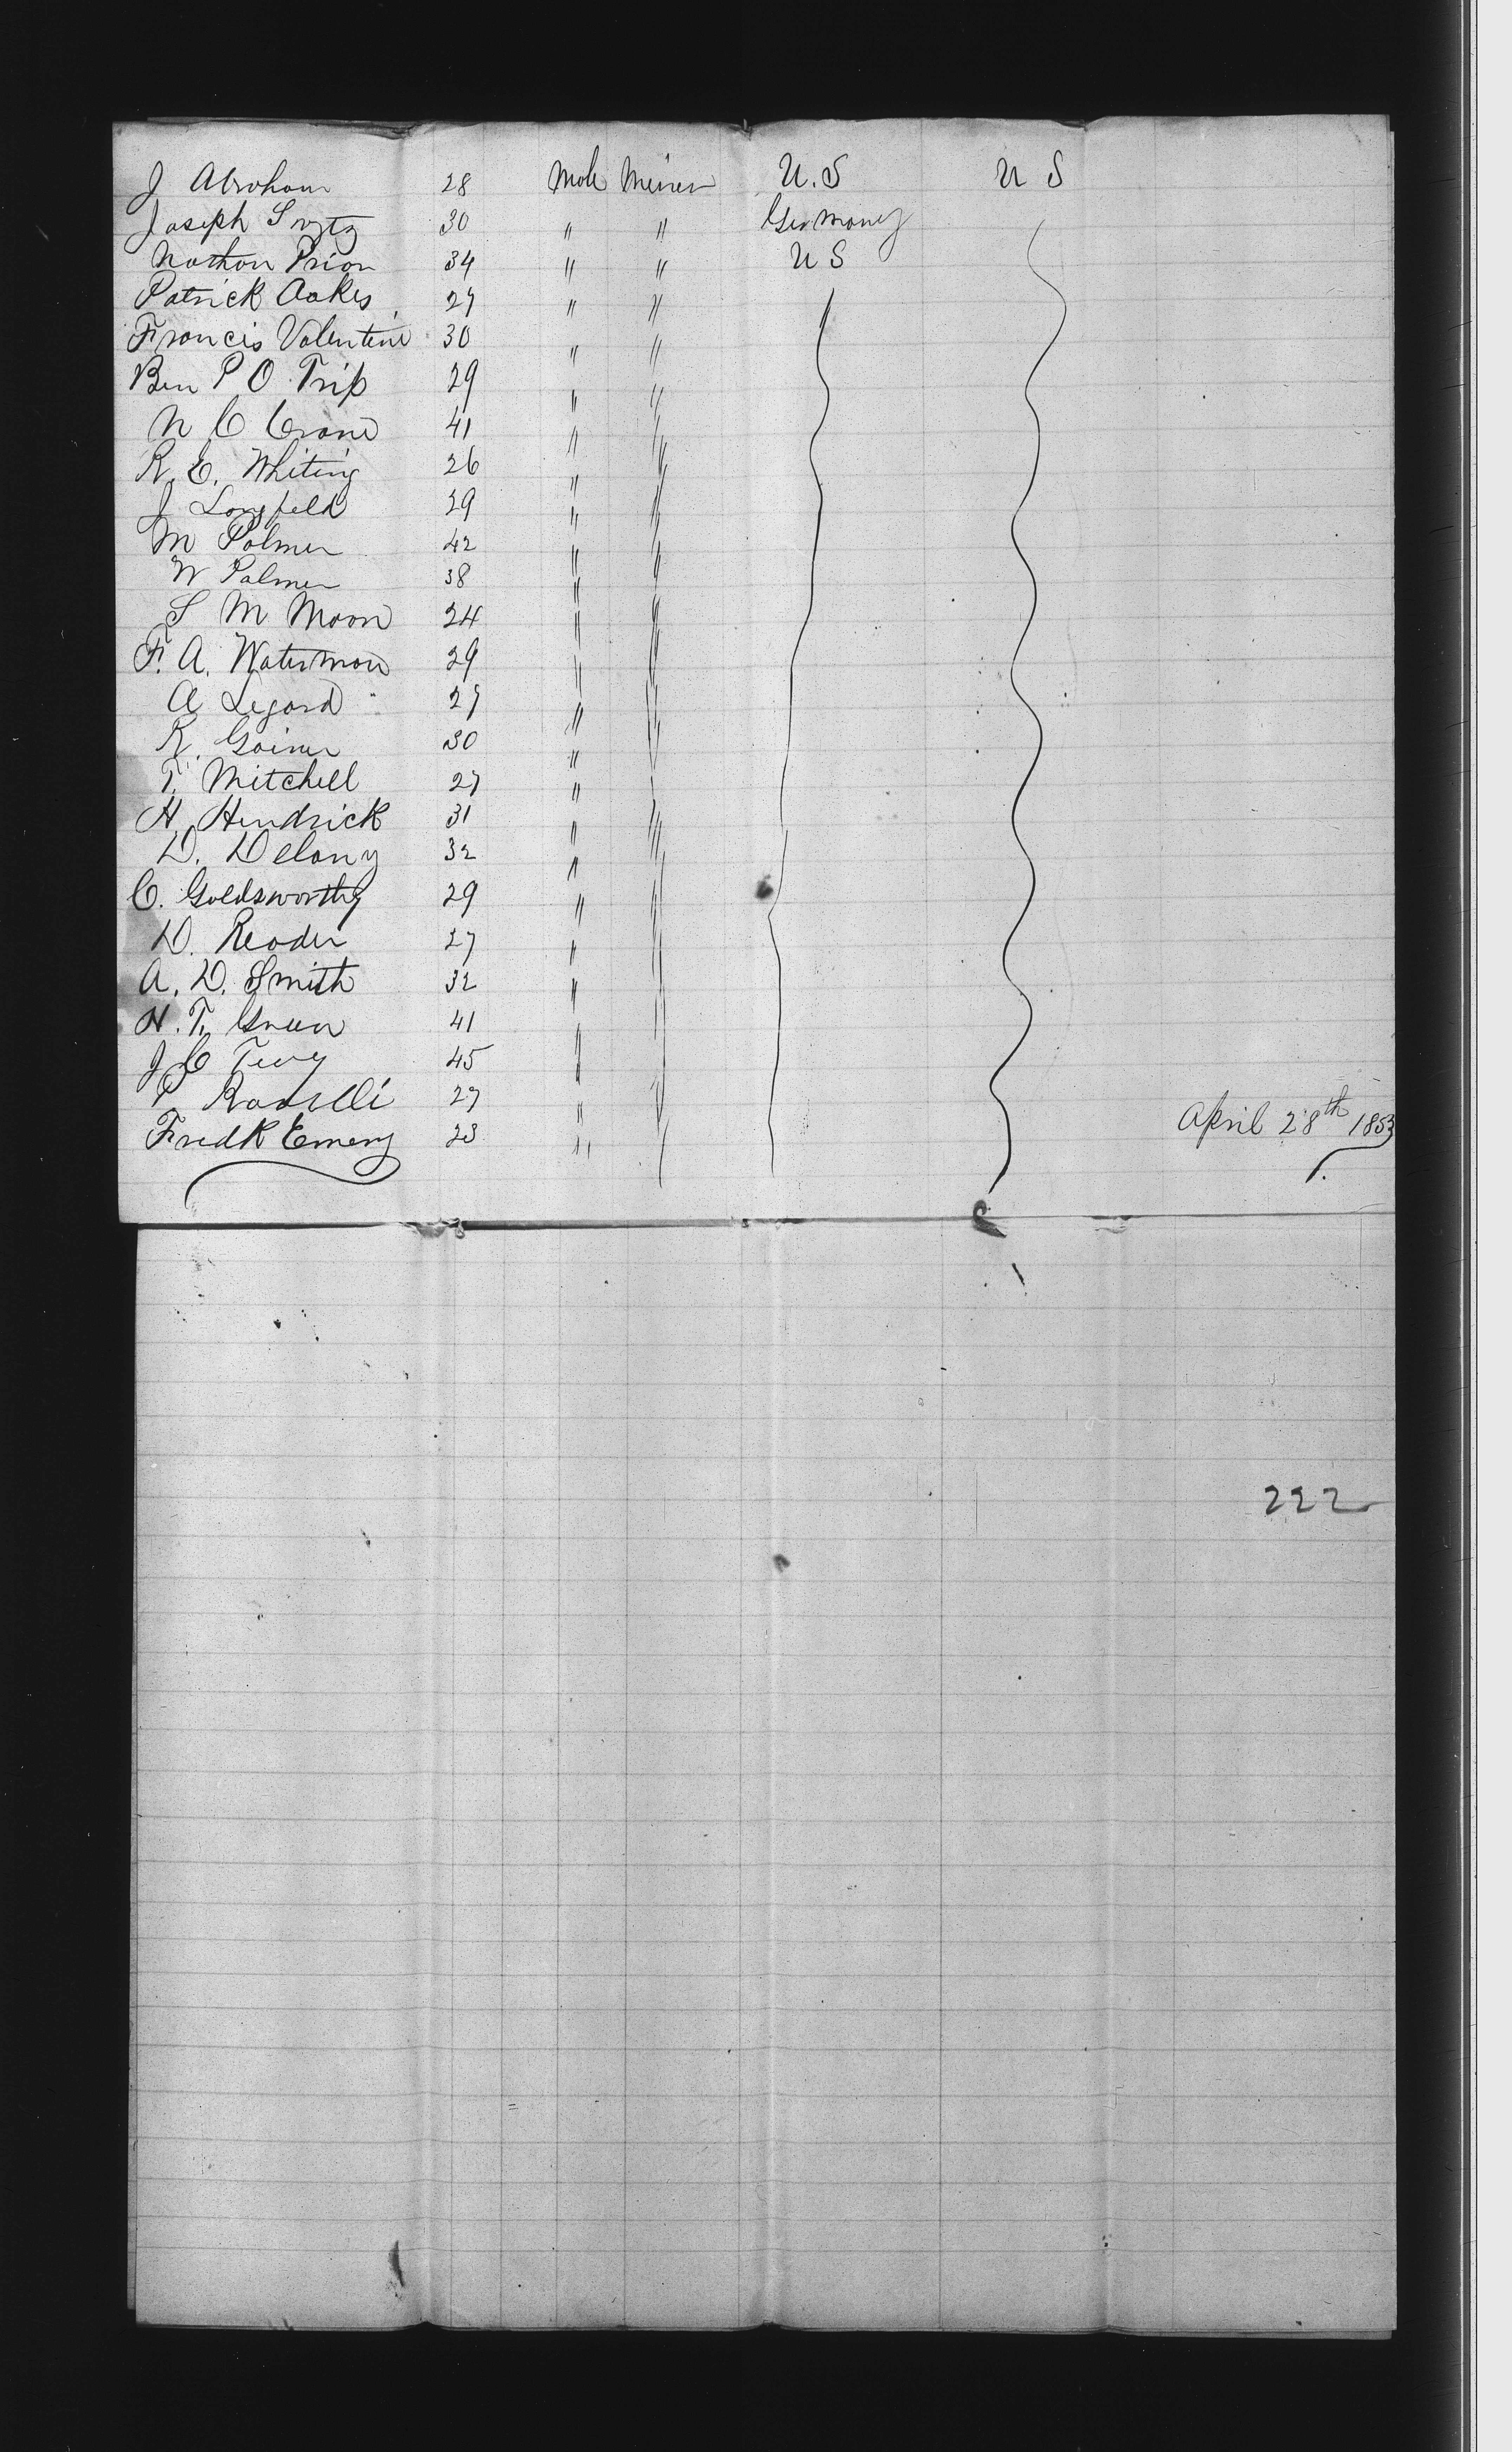 J Abraham 28 Male Miner U.S U S
Joseph 30 " " Germany
Nathan Prior 34 " " U S
Patrick Oakes 27 " "
Francis Valentine 30 " "
Ben P O Trip 29 " "
N C Crane 41 " "
R. E. Whiting 26 " "
J Longfeld 29 " "
M Palmer 42 " "
W Palmer 38 " "
S M Moon 24 " "
F. A. Waterman 29 " "
A Legard 27 " "
R. Gainer 30 " "
T. Mitchell 27 " "
H. Hendrick 31 " "
D. Delany 32 " "
C. Goldsworthy 29 " "
D. Reader 27 " "
A. D. Smith 32 " "
H. T. Green 41 " "
J C 45 " "
P 27 " "
Fredk Emery 23 " " April 28th 1853
222